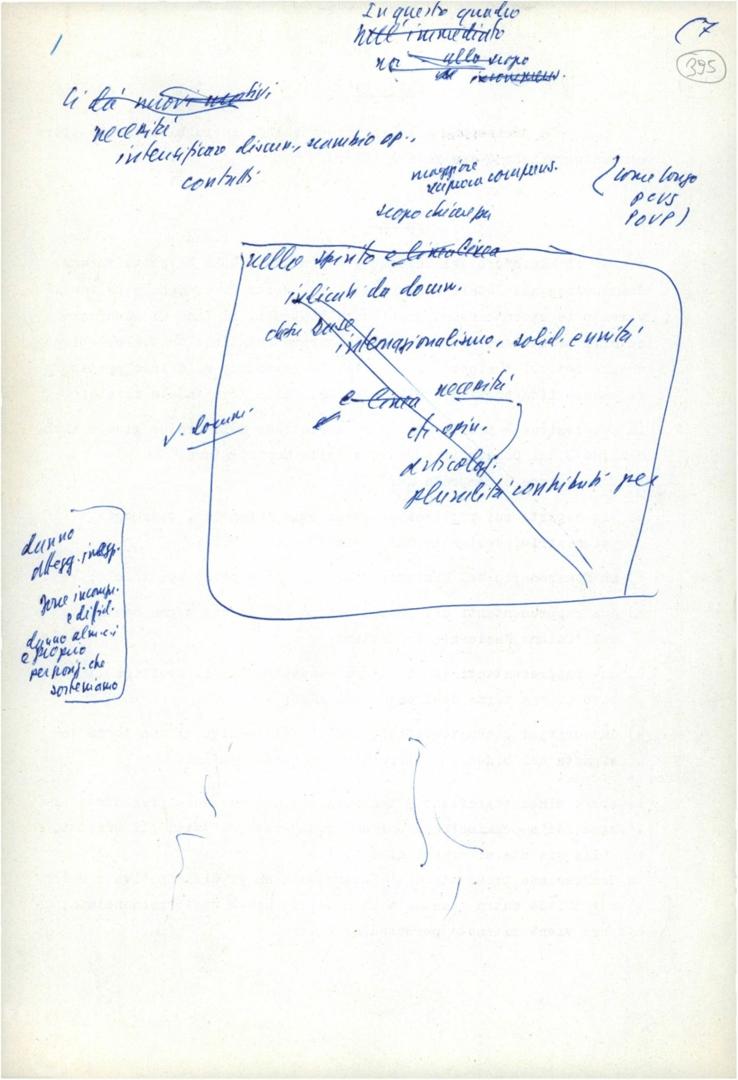 In questo quadro
nell'immediato
noi allo scopo
7
395
1
Ci dà nuovi motivi
necessità
intensificare discuss., scambio op.,
contatti
maggiore
reciproca comprens.
scopo chiarezza
(come Longo
PCUS
POUP)
nello spirito e linea
indicati da docum.
base
internazionalismo, solid. e unità
e linea necessità
v. docum.
articolaz.
pluralità contributi per
danno
attegg.
forse incompr.
e diffid.
danno
e proprio
per posiz. che
sosteniamo